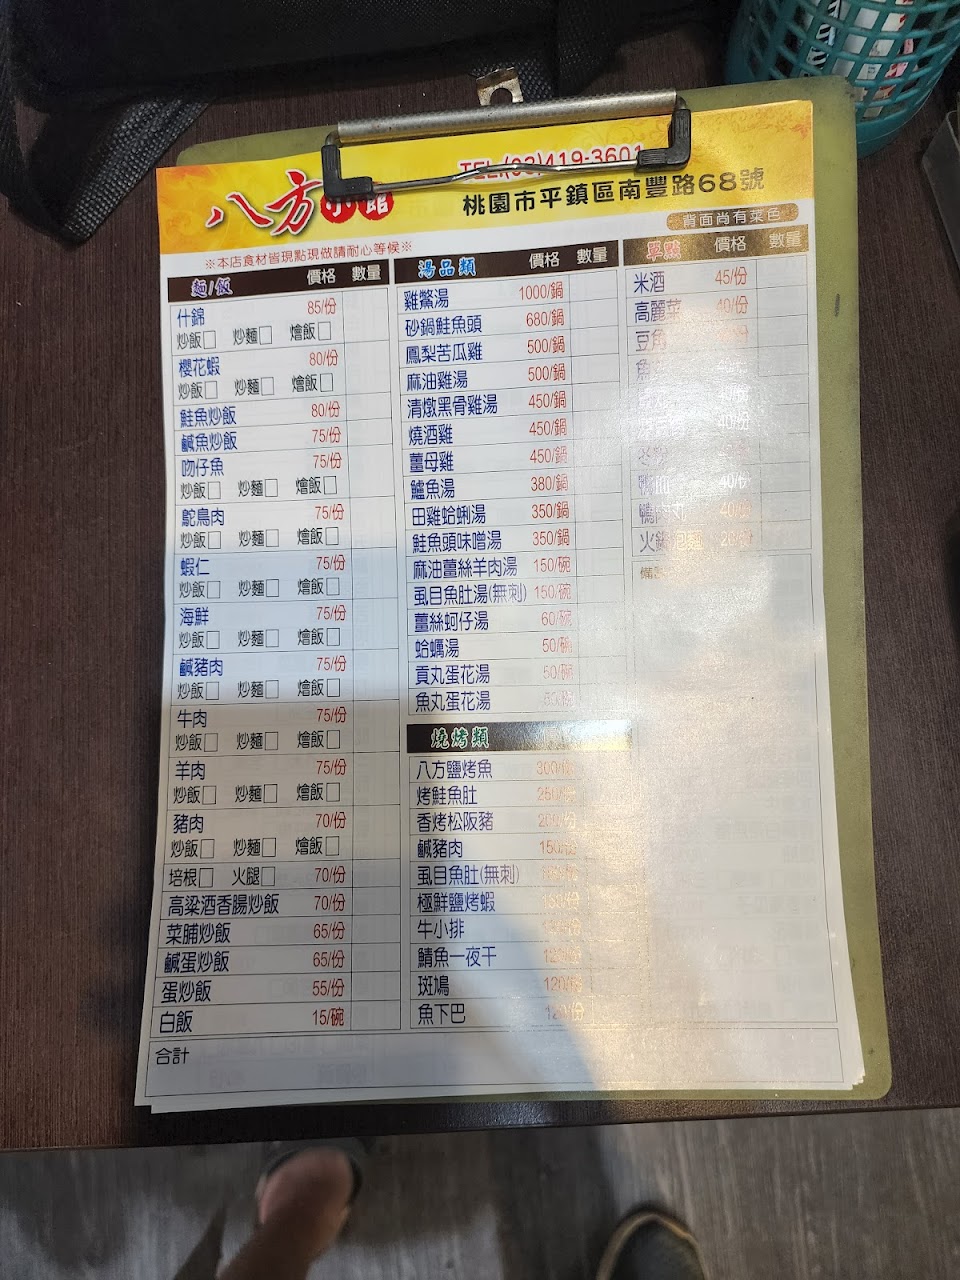 八方小館
TEL:(03)419-3601
桃園市平鎮區南豐路68號
背面尚有菜色
※本店食材皆現點現做請耐心等候※
麵/飯 價格 數量
什錦 85/份
炒飯□ 炒麵□ 燴飯□
櫻花蝦 80/份
炒飯□ 炒麵□ 燴飯□
鮭魚炒飯 80/份
鹹魚炒飯 75/份
吻仔魚 75/份
炒飯□ 炒麵□ 燴飯□
鴕鳥肉 75/份
炒飯□ 炒麵□ 燴飯□
蝦仁 75/份
炒飯□ 炒麵□ 燴飯□
海鮮 75/份
炒飯□ 炒麵□ 燴飯□
鹹豬肉 75/份
炒飯□ 炒麵□ 燴飯□
牛肉 75/份
炒飯□ 炒麵□ 燴飯□
羊肉 75/份
炒飯□ 炒麵□ 燴飯□
豬肉 70/份
炒飯□ 炒麵□ 燴飯□
培根□ 火腿□ 70/份
高粱酒香腸炒飯 70/份
菜脯炒飯 65/份
鹹蛋炒飯 65/份
蛋炒飯 55/份
白飯 15/碗
湯品類 價格 數量
雞鱉湯 1000/鍋
砂鍋鮭魚頭 680/鍋
鳳梨苦瓜雞 500/鍋
麻油雞湯 500/鍋
清燉黑骨雞湯 450/鍋
燒酒雞 450/鍋
薑母雞 450/鍋
鱸魚湯 380/鍋
田雞蛤蜊湯 350/鍋
鮭魚頭味噌湯 350/鍋
麻油薑絲羊肉湯 150/碗
虱目魚肚湯(無刺) 150/碗
薑絲蚵仔湯 60/碗
蛤蠣湯 50/碗
貢丸蛋花湯 50/碗
魚丸蛋花湯
燒烤類
八方鹽烤魚 300/份
烤鮭魚肚 250/份
香烤松阪豬 200/份
鹹豬肉 150/份
虱目魚肚(無刺)
極鮮鹽烤蝦
牛小排
鯖魚一夜干 120/份
斑鳩 120/份
魚下巴 120/份
單點 價格 數量
米酒 45/份
高麗菜 40/份
40/份
40/份
40/份
火鍋泡麵 20/份
合計